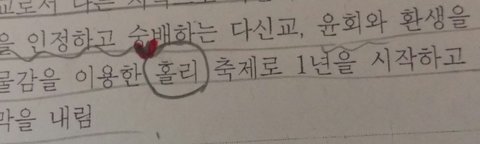 을 인정하고 숭배하는 다신교, 윤회와 환생을
물감을 이용한 홀리 축제로 1년을 시작하고
막을 내림